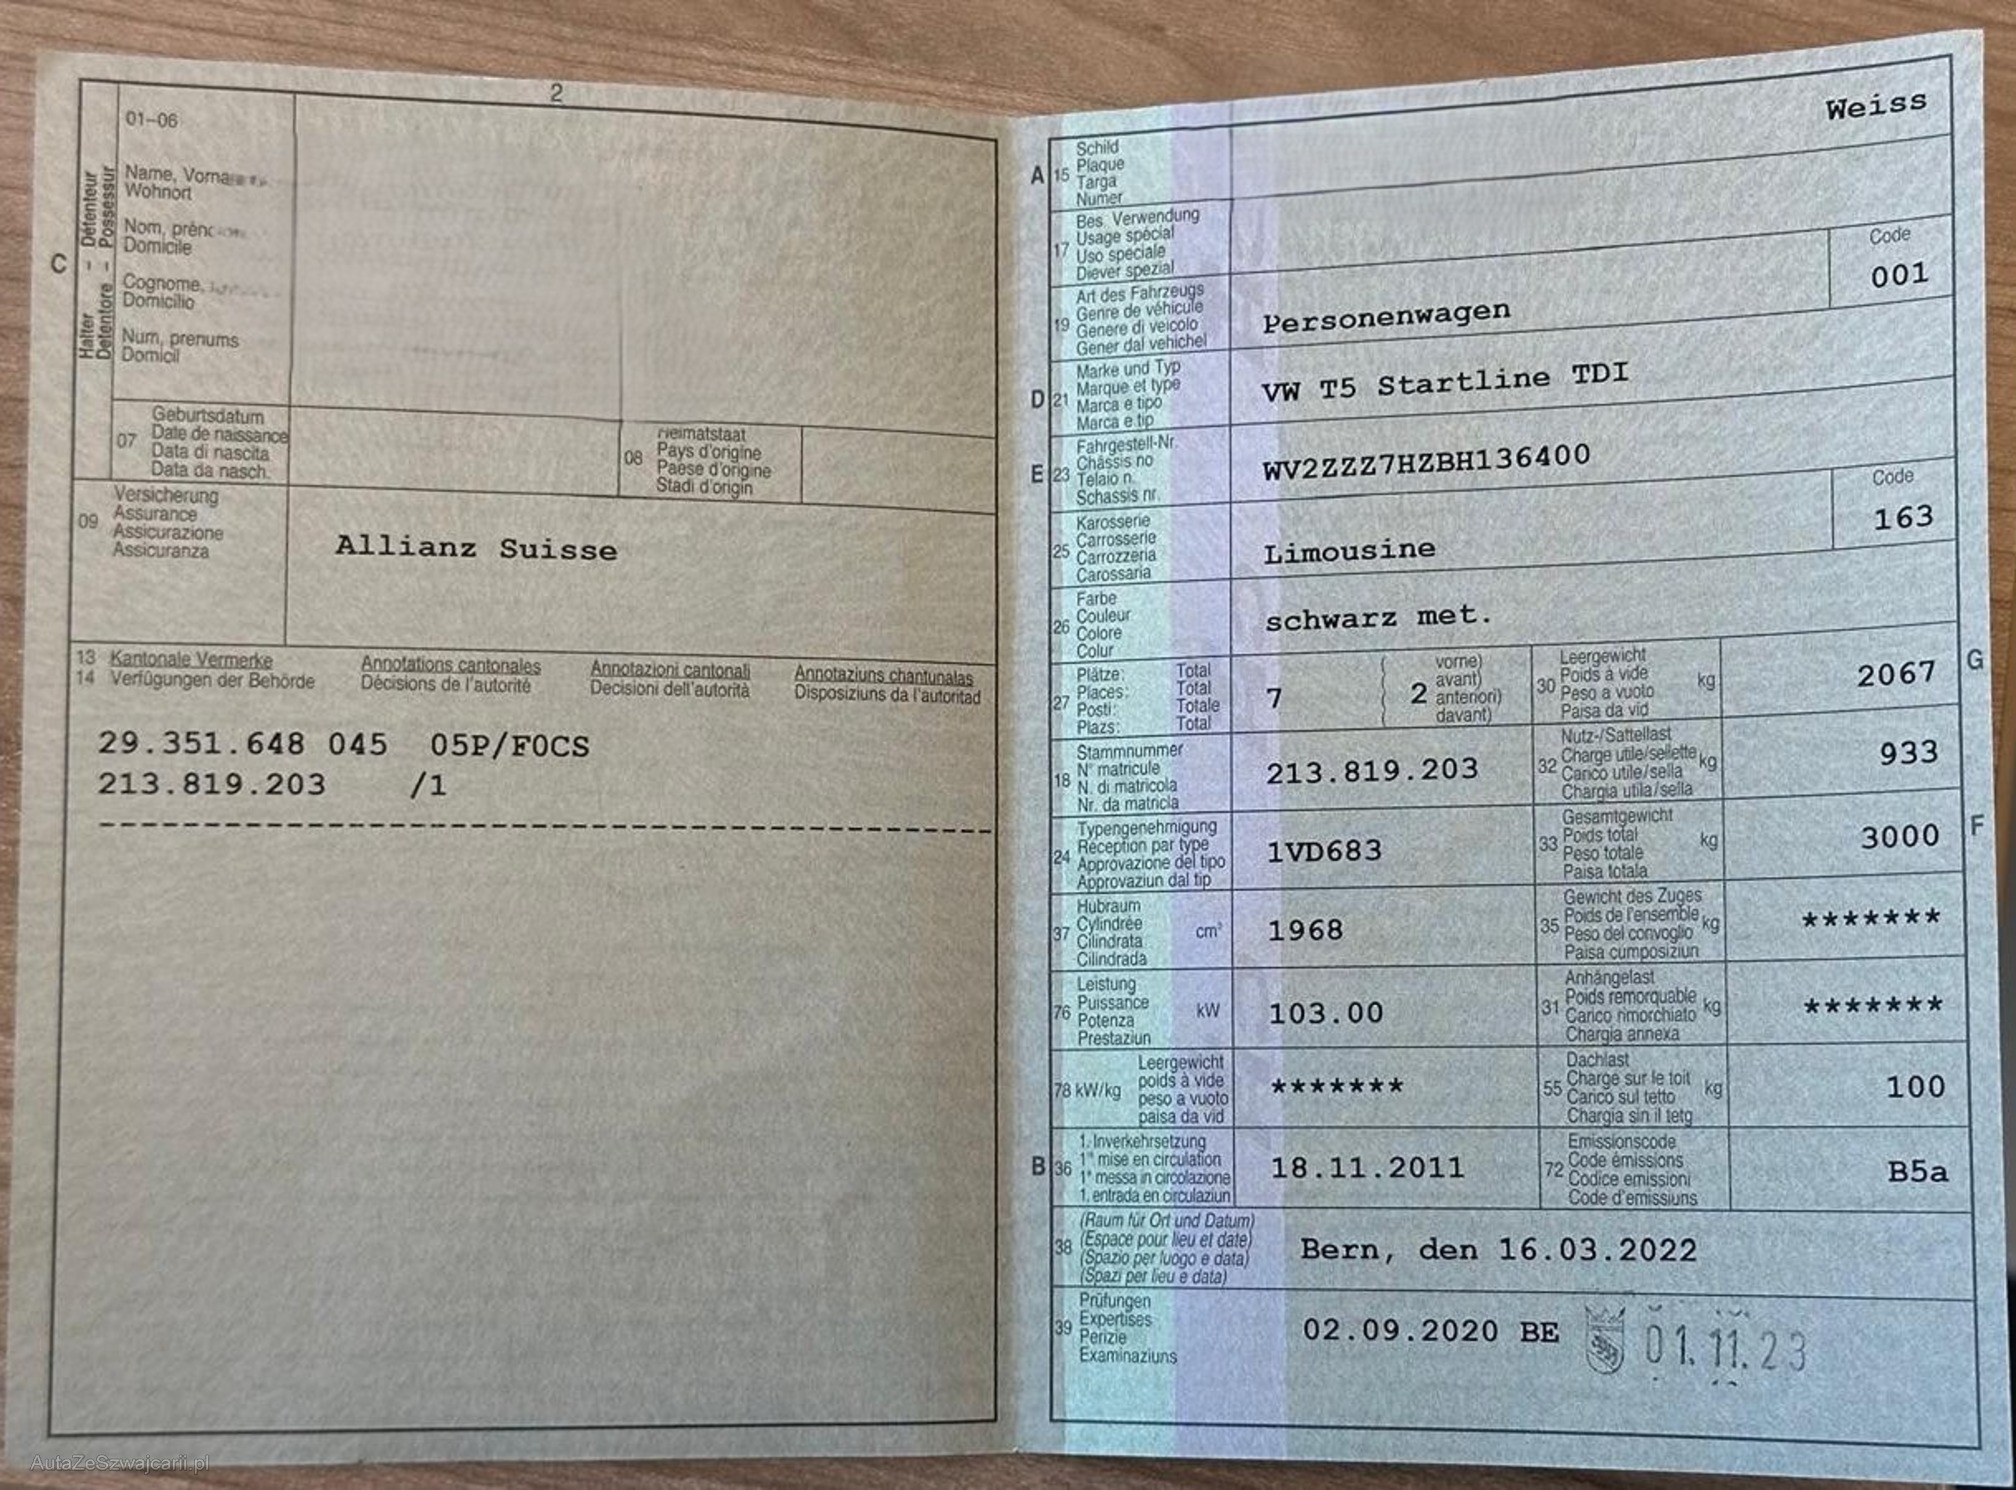 2
01–06
Name, Vorna
Wohnort
Nom, prén
Domicile
Cognome,
Domicilio
Num, prenums
Domicil
C
Halter – Détenteur
Detentore – Possessur
07
Geburtsdatum
Date de naissance
Data di nascita
Data da nasch.
08
Heimatstaat
Pays d'origine
Paese d'origine
Stadi d'origin
09
Versicherung
Assurance
Assicurazione
Assicuranza
Allianz Suisse
13 Kantonale Vermerke Annotations cantonales Annotazioni cantonali Annotaziuns chantunalas
14 Verfügungen der Behörde Décisions de l'autorité Decisioni dell'autorità Disposiziuns da l'autoritad
29.351.648 045 05P/F0CS
213.819.203 /1
Weiss
A 15
Schild
Plaque
Targa
Numer
17
Bes. Verwendung
Usage spécial
Uso speciale
Diever spezial
19
Art des Fahrzeugs
Genre de véhicule
Genere di veicolo
Gener dal vehichel
Personenwagen
Code
001
D 21
Marke und Typ
Marque et type
Marca e tipo
Marca e tip
VW T5 Startline TDI
E 23
Fahrgestell-Nr.
Châssis no
Telaio n.
Schassis nr.
WV2ZZZ7HZBH136400
25
Karosserie
Carrosserie
Carrozzeria
Carossaria
Limousine
Code
163
26
Farbe
Couleur
Colore
Colur
schwarz met.
27
Plätze: Total
Places: Total
Posti: Totale
Plazs: Total
7
2
vorne)
avant)
anteriori)
davant)
30
Leergewicht
Poids à vide
Peso a vuoto
Paisa da vid
kg
2067
G
18
Stammnummer
N° matricule
N. di matricola
Nr. da matricla
213.819.203
32
Nutz-/Sattellast
Charge utile/sellette
Carico utile/sella
Chargia utila/sella
kg
933
24
Typengenehmigung
Réception par type
Approvazione del tipo
Approvaziun dal tip
1VD683
33
Gesamtgewicht
Poids total
Peso totale
Paisa totala
kg
3000
F
37
Hubraum
Cylindrée
Cilindrata
Cilindrada
cm³
1968
35
Gewicht des Zuges
Poids de l'ensemble
Peso del convoglio
Paisa cumposiziun
kg
*******
76
Leistung
Puissance
Potenza
Prestaziun
kW
103.00
31
Anhängelast
Poids remorquable
Carico rimorchiato
Chargia annexa
kg
*******
78 kW/kg
Leergewicht
poids à vide
peso a vuoto
paisa da vid
*******
55
Dachlast
Charge sur le toit
Carico sul tetto
Chargia sin il tetg
kg
100
B 36
1. Inverkehrsetzung
1re mise en circulation
1a messa in circolazione
1. entrada en circulaziun
18.11.2011
72
Emissionscode
Code émissions
Codice emissioni
Code d'emissiuns
B5a
38
(Raum für Ort und Datum)
(Espace pour lieu et date)
(Spazio per luogo e data)
(Spazi per lieu e data)
Bern, den 16.03.2022
39
Prüfungen
Expertises
Perizie
Examinaziuns
02.09.2020 BE
01.11.23
AutaZeSzwajcarii.pl